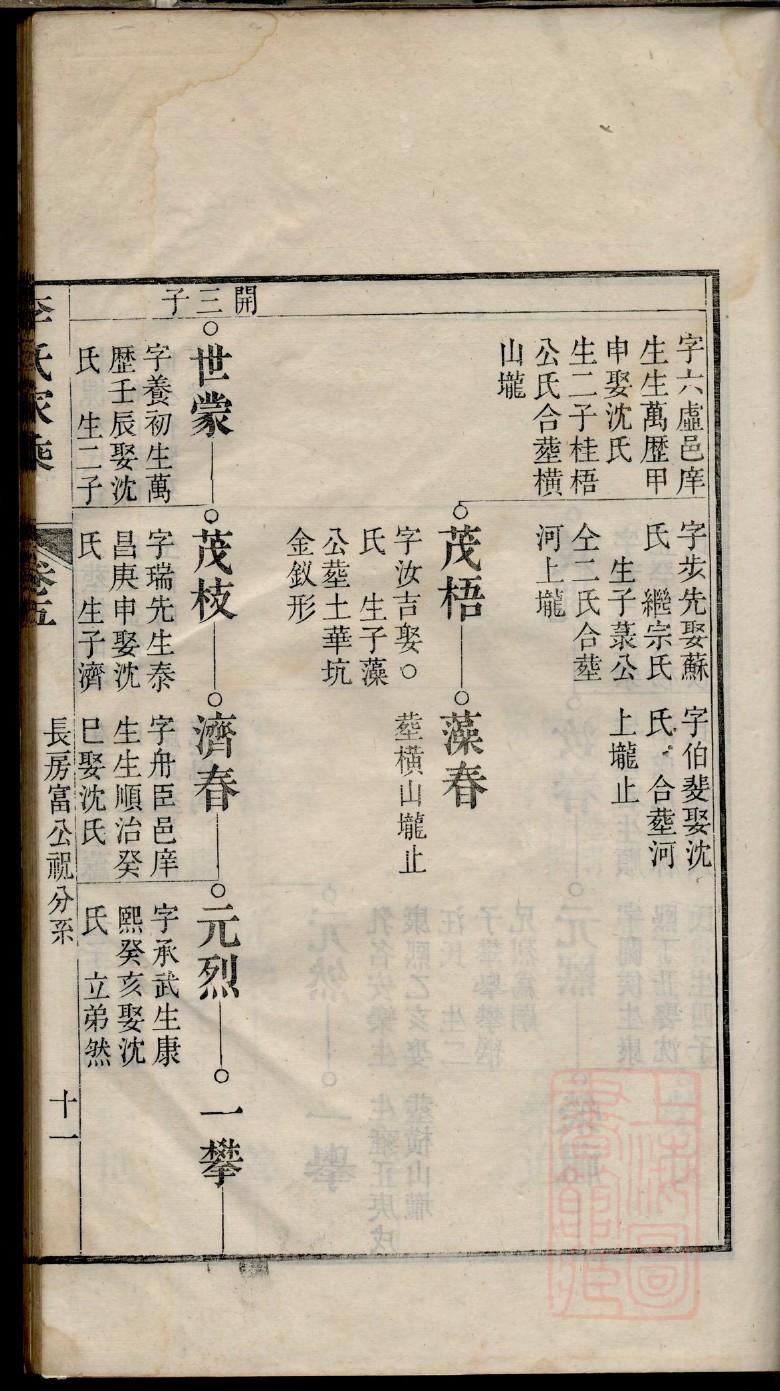 字六虛邑庠
生生萬歷甲
申娶沈氏
生二子桂梧
公氏合塟橫
山壠
字步先娶蘇
氏　繼宗氏
生子菉公
仝二氏合塟
河上壠
字伯斐娶沈
氏　合塟河
上壠止
茂梧
字汝吉娶○
氏　生子藻
公塟土華坑
金釵形
藻春
塟橫山壠止
開三子
世蒙
字養初生萬
歷壬辰娶沈
氏　生二子
茂枝
字瑞先生泰
昌庚申娶沈
氏　生子濟
濟春
字舟臣邑庠
生生順治癸
巳娶沈氏
元烈
字承武生康
熙癸亥娶沈
氏　立弟然
一攀
李氏家乘
卷五
長房富公祝分系
十一
上海圖書館藏